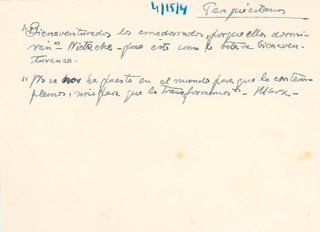 4/15/4
"Bienaventurados los amodorrados, porque ellos dormi-
rán" - Nietzsche - pues ésto como la octava bienaven-
turanza.
"No se nos ha puesto en el mundo para que lo contem-
plemos, sino para que lo transformemos" - Marx -